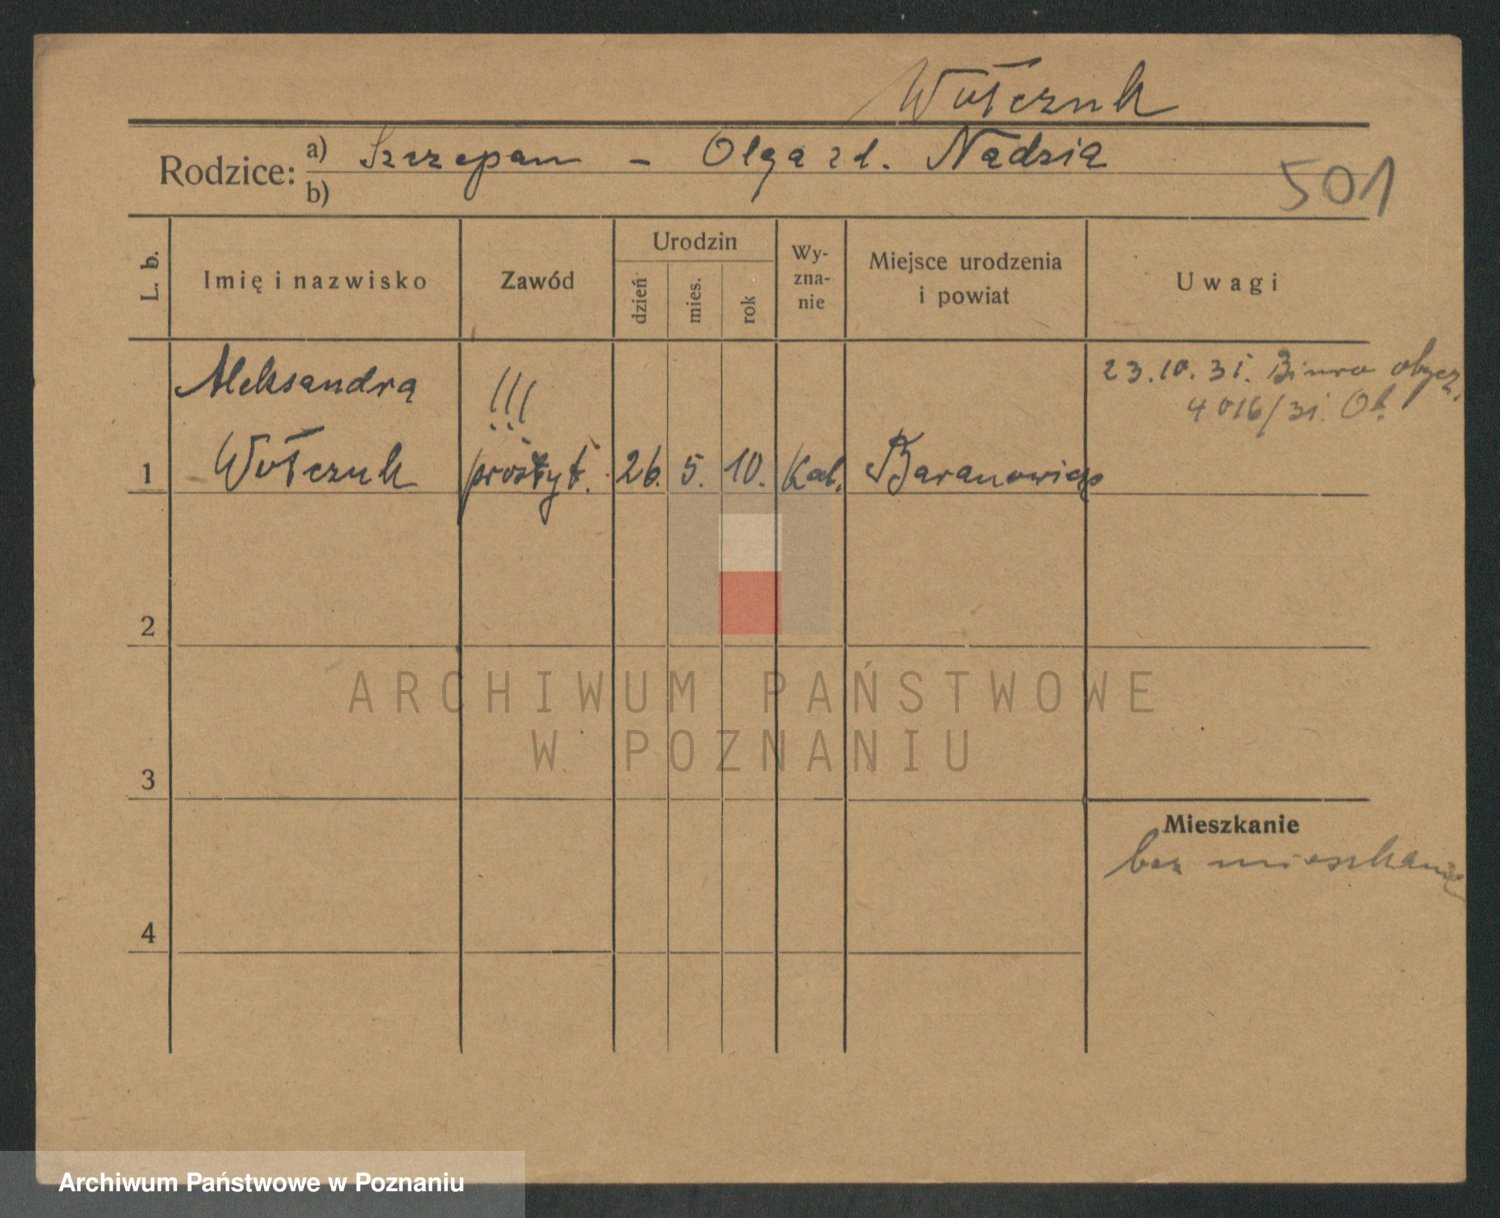 Wołczuk
Rodzice: a) Szczepan – Olga zd. Nadzia
b)
501
L. b.
Imię i nazwisko
Zawód
Urodzin
dzień
mies.
rok
Wy-
zna-
nie
Miejsce urodzenia
i powiat
Uwagi
Aleksandra
!!!
23.10.31. Biuro obycz.
4016/31.
1 Wołczuk prostyt. 26. 5. 10. Kat.
2
3
4
Mieszkanie
bez mieszkania
ARCHIWUM PAŃSTWOWE
W POZNANIU
Archiwum Państwowe w Poznaniu